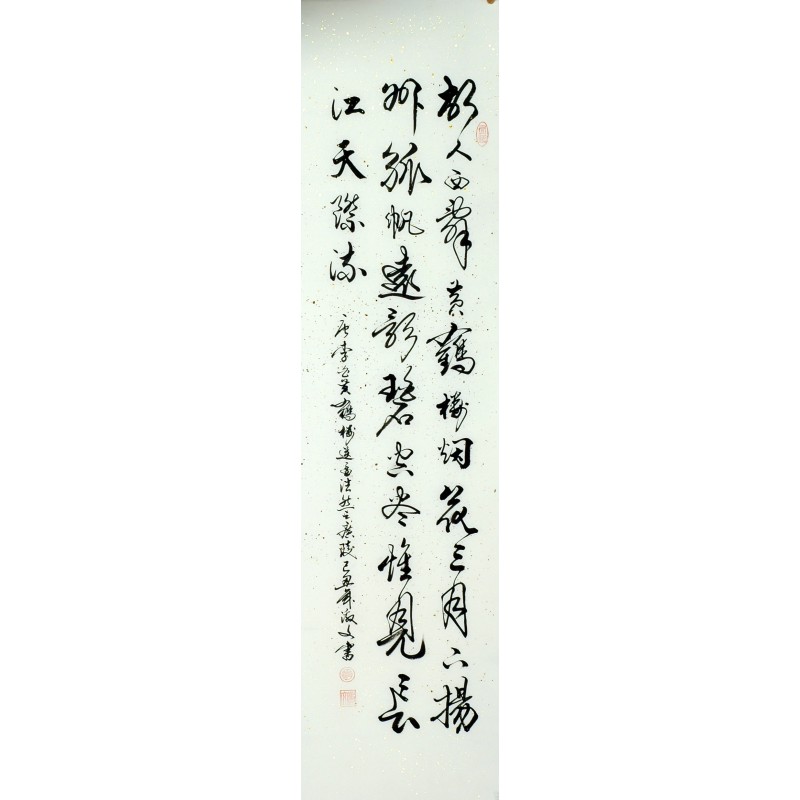 故人西辭黄鶴樓烟花三月下揚
州孤帆遠影碧空尽惟見長
江天際流
唐李白黄鶴樓送孟浩然之廣陵己丑年淑文書